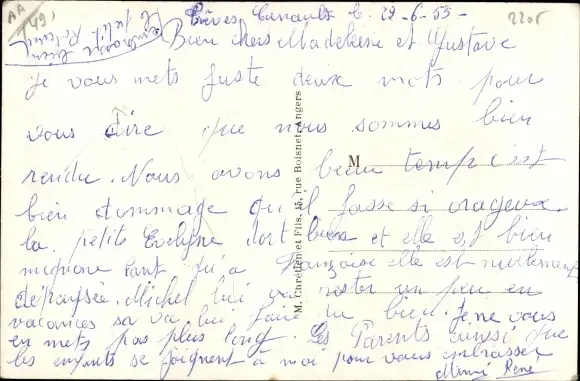 AA
(49)
2205
Trèves Cunault le 29-6-55
Embrassez bien
le petit Roland
Bien chers Madeleine et Gustave
Je vous mets juste deux mots pour
vous dire que nous sommes bien
rendu. Nous avons beau temps c'est
bien dommage qu'il fasse si orageux.
la petite Evelyne dort bien et elle est bien
mignone tant qu'à Françoise elle est nullement
dépaysée. Michel lui va rester un peu en
vacances sa va lui faire du bien. Je ne vous
en mets pas plus long. Les Parents ainsi que
les enfants se joignent à moi pour vous embrasser
Rene
M
M. Chrétien et Fils, 15, rue Boisnet, Angers